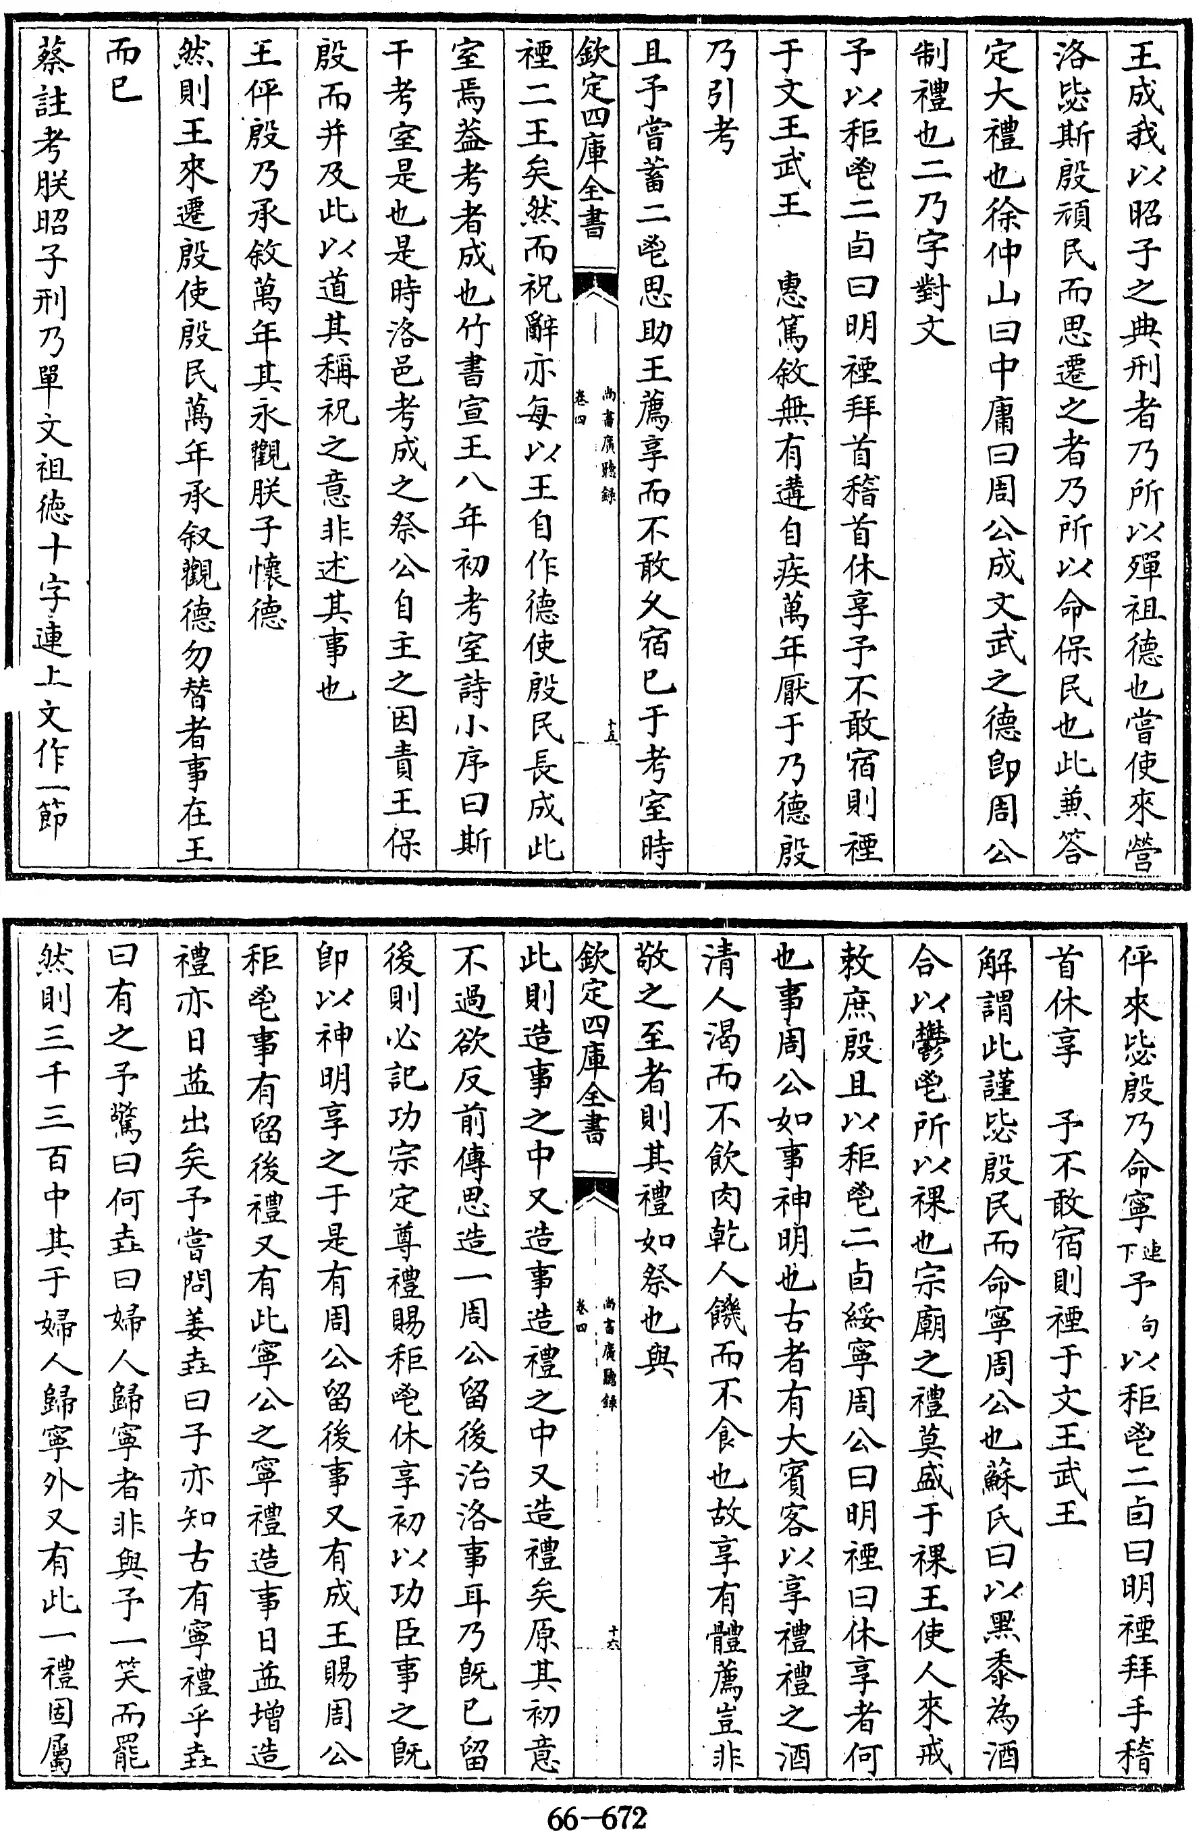 王成我以昭子之典刑者乃所以殫祖德也嘗使來營
洛毖斯殷頑民而思遷之者乃所以命保民也此兼答
定大禮也徐仲山曰中庸曰周公成文武之德即周公
制禮也二乃字對文
予以秬鬯二卣曰明禋拜首稽首休享予不敢宿則禋
于文王武王 惠篤敘無有遘自疾萬年厭于乃德殷
乃引考
且予嘗蓄二鬯思助王薦享而不敢乆宿已于考室時
欽定四庫全書
尚書廣聽錄
卷四
十五
禋二王矣然而祝辭亦每以王自作德使殷民長成此
室焉葢考者成也竹書宣王八年初考室詩小序曰斯
干考室是也是時洛邑考成之祭公自主之因責王保
殷而并及此以道其稱祝之意非述其事也
王伻殷乃承敘萬年其永觀朕子懷德
然則王來遷殷使殷民萬年承叙觀德勿替者事在王
而已
蔡註考朕昭子刑乃單文祖德十字連上文作一節
伻來毖殷乃命寧連下予句以秬鬯二卣曰明禋拜手稽
首休享 予不敢宿則禋于文王武王
解謂此謹毖殷民而命寧周公也蘇氏曰以黑黍為酒
合以鬱鬯所以祼也宗廟之禮莫盛于祼王使人來戒
敕庶殷且以秬鬯二卣綏寧周公曰明禋曰休享者何
也事周公如事神明也古者有大賓客以享禮禮之酒
清人渴而不飲肉乾人饑而不食也故享有體薦豈非
敬之至者則其禮如祭也與
欽定四庫全書
尚書廣聽錄
卷四
十六
此則造事之中又造事造禮之中又造禮矣原其初意
不過欲反前傳思造一周公留後治洛事耳乃既已留
後則必記功宗定尊禮賜秬鬯休享初以功臣事之既
即以神明享之于是有周公留後事又有成王賜周公
秬鬯事有留後禮又有此寧公之寧禮造事日益增造
禮亦日益出矣予嘗問姜垚曰子亦知古有寧禮乎垚
曰有之予驚曰何垚曰婦人歸寧者非與予一笑而罷
然則三千三百中其于婦人歸寧外又有此一禮固屬
66-672